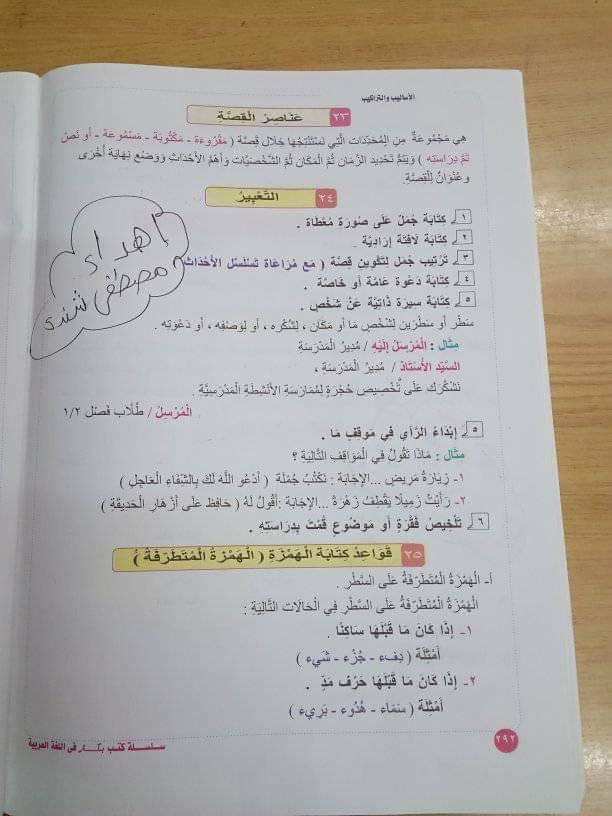 الأساليب والتراكيب
٢٣ عَنَاصِرُ الْقِصَّةِ
هِيَ مَجْمُوعَةٌ مِنَ المُحَدِّدَاتِ الَّتِي نَسْتَنْتِجُهَا خِلَالَ قِصَّةٍ ( مَقْرُوءَةٍ - مَكْتُوبَةٍ - مَسْمُوعَةٍ - أو نَصٍّ
تَمَّ دِرَاسَتِهِ ) وَيَتِمُّ تَحْدِيدُ الزَّمَانِ ثُمَّ الْمَكَانِ ثُمَّ الشَّخْصِيَّاتِ وَأَهَمِّ الأَحْدَاثِ وَوَضْعِ نِهَايَةٍ أُخْرَى
وَعُنْوَانٍ لِلْقِصَّةِ.
٢٤ التَّعْبِيرُ
١ كِتَابَةُ جُمَلٍ عَلَى صُورَةٍ مُعْطَاةٍ .
٢ كِتَابَةُ لَافِتَةٍ إِرَادِيَّةٍ .
٣ تَرْتِيبُ جُمَلٍ لِتَكْوِينِ قِصَّةٍ ( مَعَ مُرَاعَاةِ تَسَلْسُلِ الأَحْدَاثِ
٤ كِتَابَةُ دَعْوَةٍ عَامَّةٍ أَو خَاصَّةٍ .
٥ كِتَابَةُ سِيرَةٍ ذَاتِيَّةٍ عَنْ شَخْصٍ .
إهداء
مصطفى شندى
سَطْرٍ أَو سَطْرَيْنِ لِشَخْصٍ مَا أَو مَكَانٍ ، لِشُكْرِهِ ، أَو لِوَصْفِهِ ، أَو دَعْوَتِهِ .
مِثَال : الْمُرْسَلُ إِلَيْهِ / مُدِيرُ الْمَدْرَسَةِ
السَّيِّدُ الأُسْتَاذُ / مُدِيرُ الْمَدْرَسَةِ ،
نَشْكُرُكَ عَلَى تَخْصِيصِ حُجْرَةٍ لِمُمَارَسَةِ الأَنْشِطَةِ الْمَدْرَسِيَّةِ
الْمُرْسِلُ / طُلَّابُ فَصْلِ ١/٢
٥ إِبْدَاءُ الرَّأْيِ فِي مَوْقِفٍ مَا .
مِثَال : مَاذَا تَقُولُ فِي الْمَوَاقِفِ التَّالِيَةِ ؟
١- زِيَارَةُ مَرِيضٍ ...الإِجَابَةُ : نَكْتُبُ جُمْلَةَ ( أَدْعُو اللَّهَ لَكَ بِالشِّفَاءِ الْعَاجِلِ )
٢- رَأَيْتُ زَمِيلًا يَقْطِفُ زَهْرَةً ...الإِجَابَةُ :أَقُولُ لَهُ ( حَافِظْ عَلَى أَزْهَارِ الْحَدِيقَةِ )
٦ تَلْخِيصُ فِقْرَةٍ أَو مَوْضُوعٍ قُمْتَ بِدِرَاسَتِهِ .
٢٥ قَوَاعِدُ كِتَابَةِ الْهَمْزَةِ ( الْهَمْزَةُ الْمُتَطَرِّفَةُ )
أ- الْهَمْزَةُ الْمُتَطَرِّفَةُ عَلَى السَّطْرِ .
الْهَمْزَةُ الْمُتَطَرِّفَةُ عَلَى السَّطْرِ فِي الْحَالَاتِ التَّالِيَةِ :
١- إِذَا كَانَ مَا قَبْلَهَا سَاكِنًا .
أَمْثِلَة ( دِفء - جُزْء - شَيء )
٢- إِذَا كَانَ مَا قَبْلَهَا حَرْفَ مَدٍّ .
أَمْثِلَة ( سَمَاء - هُدُوء - بَرِيء )
٢٩٢
سلسلة كتب بكار في اللغة العربية